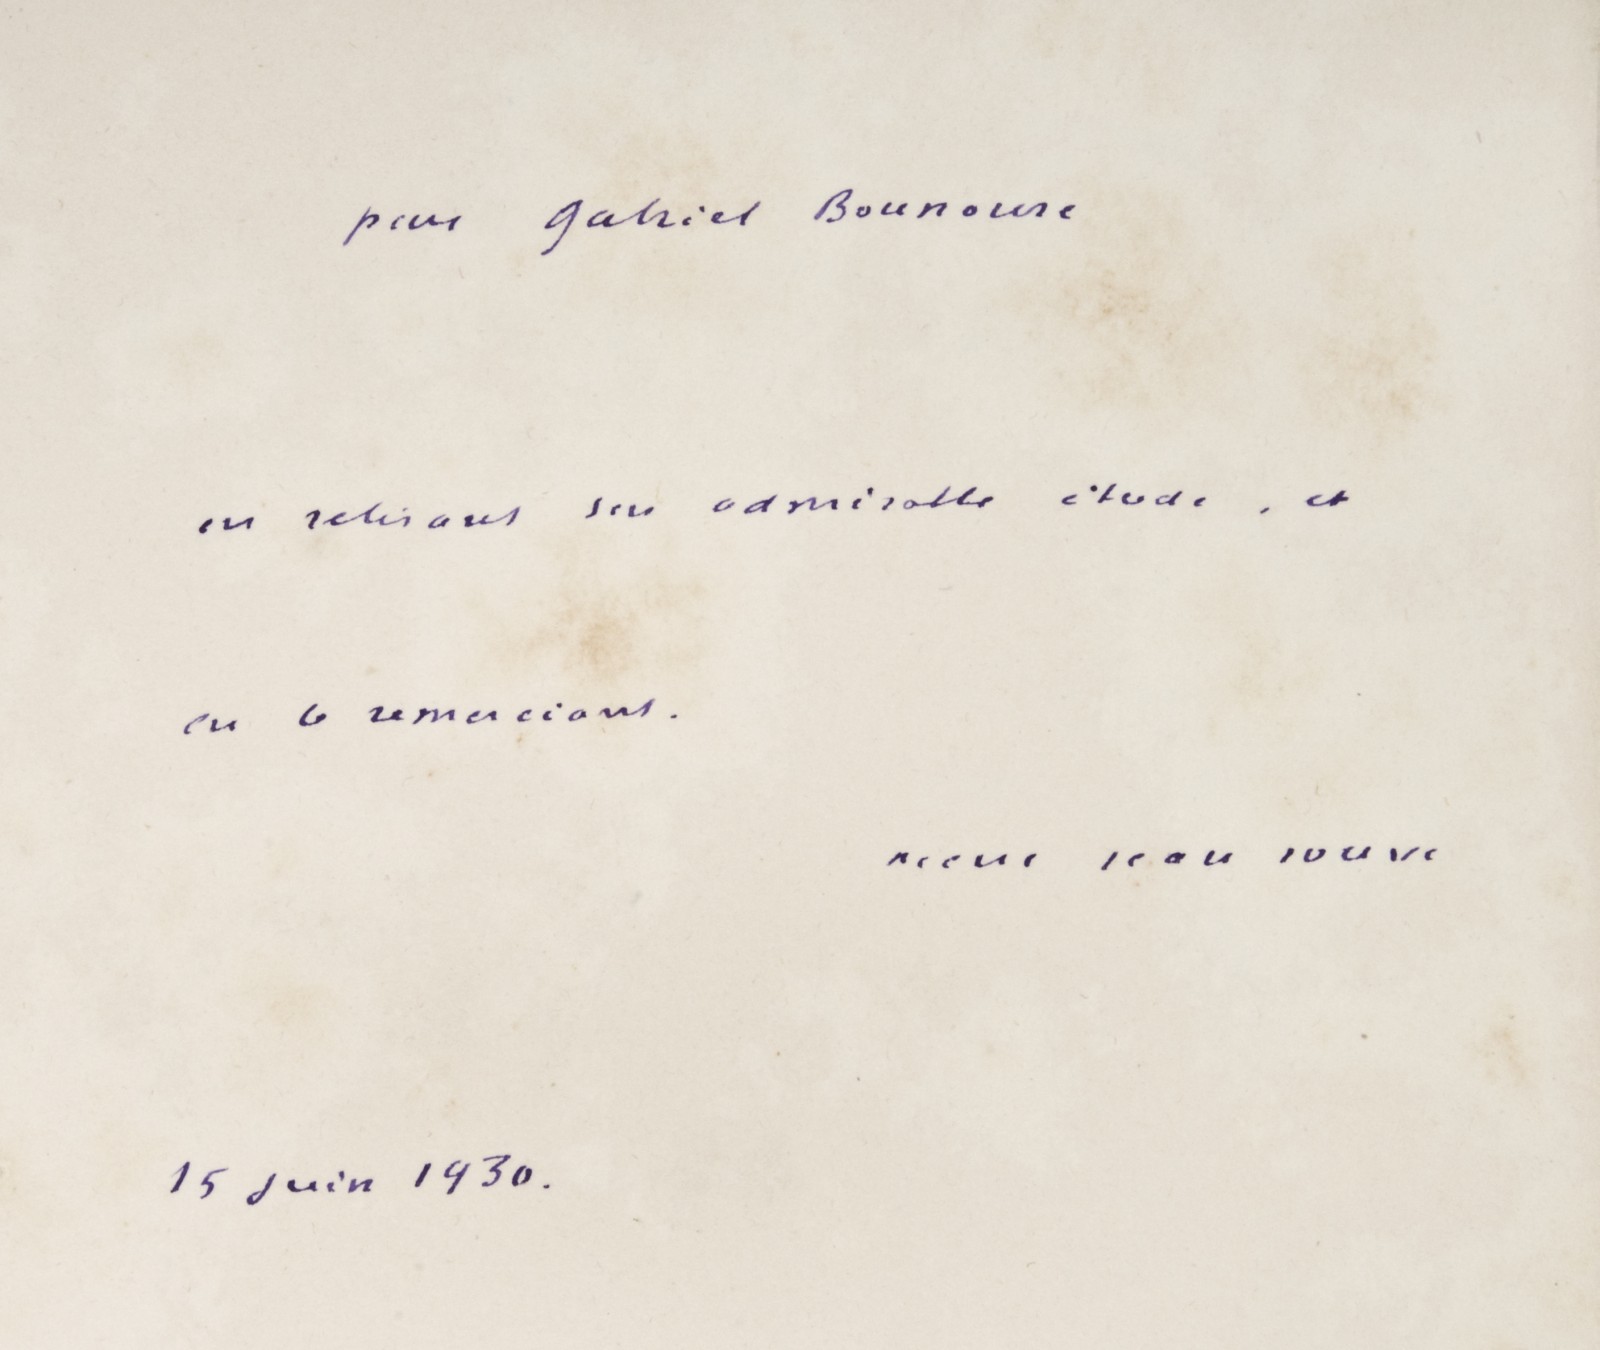 pour Gabriel Bounoure
en relisant son admirable étude, et
en le remerciant.
Pierre Jean Jouve
15 juin 1930.